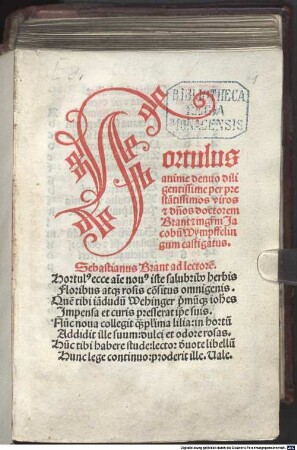 BIBLIOTHECA
REGIA
MONACENSIS
Hortulus
anime denuo dili
gentissime per pre
stātissimos viros
⁊ dños doctorem
Brant ⁊ mgr̄m Ja
cobū Wympffelin
gum castigatus.
Sebastianus Brant ad lectorē.
Hortulꝰ ecce aīe nouꝰ iste salubribꝰ herbis
Floribus atqꝫ rosis cōsitus omnigenis.
Quē tibi iādudū Wehinger p̄mūqꝫ iohēs
Impensa et curis preserat ip̄e suis.
Nūc noua collegit qꝫplīma lilia: in hortū
Addidit ille suum: dulci et odore rosas.
Hūc tibi habere stude: lector deuote libellū
Hunc lege continuo: proderit ille. Vale.